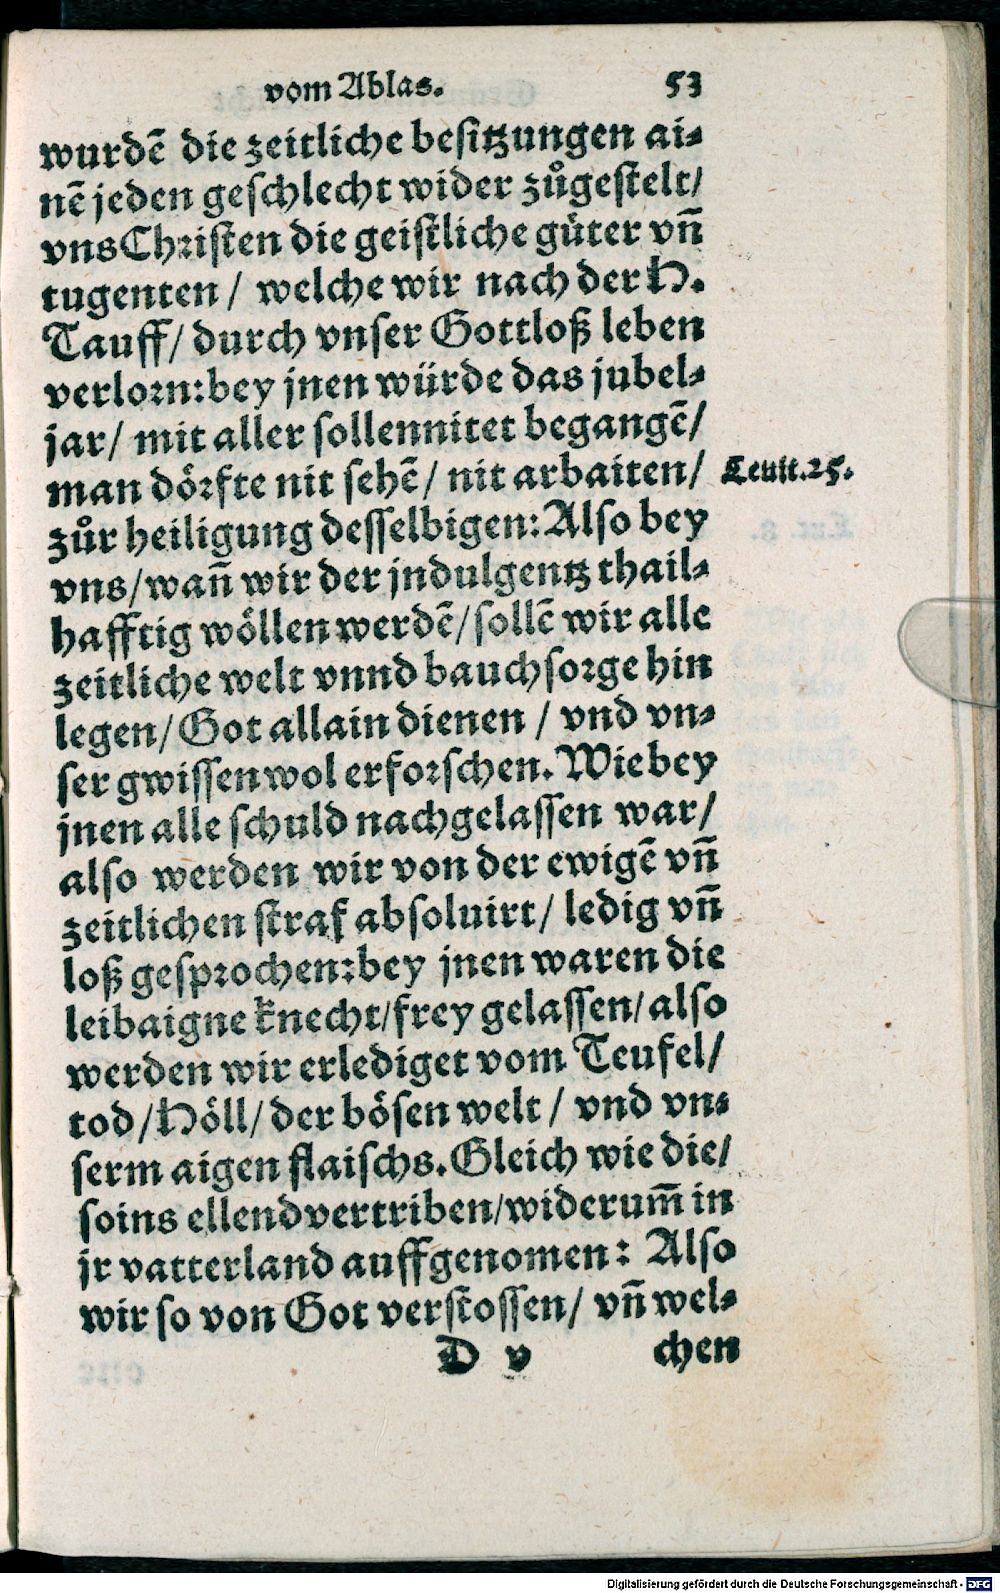 vom Ablas. 53
wurdē die zeitliche besitzungen ai⸗
nē jeden geschlecht wider zůgestelt/
vns Christen die geistliche gůter vñ
tugenten / welche wir nach der H.
Tauff/ durch vnser Gottloß leben
verlorn: bey jnen würde das jubel⸗
jar/ mit aller sollennitet begangē/
man dörfte nit sehē/ nit arbaiten/ Leuit. 25.
zůr heiligung desselbigen: Also bey
vns/ wañ wir der jndulgentz thail⸗
hafftig wöllen werdē/ sollē wir alle
zeitliche welt vnnd bauchsorge hin
legen/ Got allain dienen / vnd vn⸗
ser gwissen wol erforschen. Wie bey
jnen alle schuld nachgelassen war/
also werden wir von der ewigē vñ
zeitlichen straf absoluirt/ ledig vñ
loß gesprochen: bey jnen waren die
leibaigne knecht/ frey gelassen/ also
werden wir erlediget vom Teufel/
tod/ Höll/ der bösen welt / vnd vn⸗
serm aigen flaischs. Gleich wie die/
so ins ellend vertriben/ widerum̃ in
jr vatterland auffgenomen: Also
wir so von Got verstossen/ vñ wel⸗
D v chen
Digitalisierung gefördert durch die Deutsche Forschungsgemeinschaft - DFG